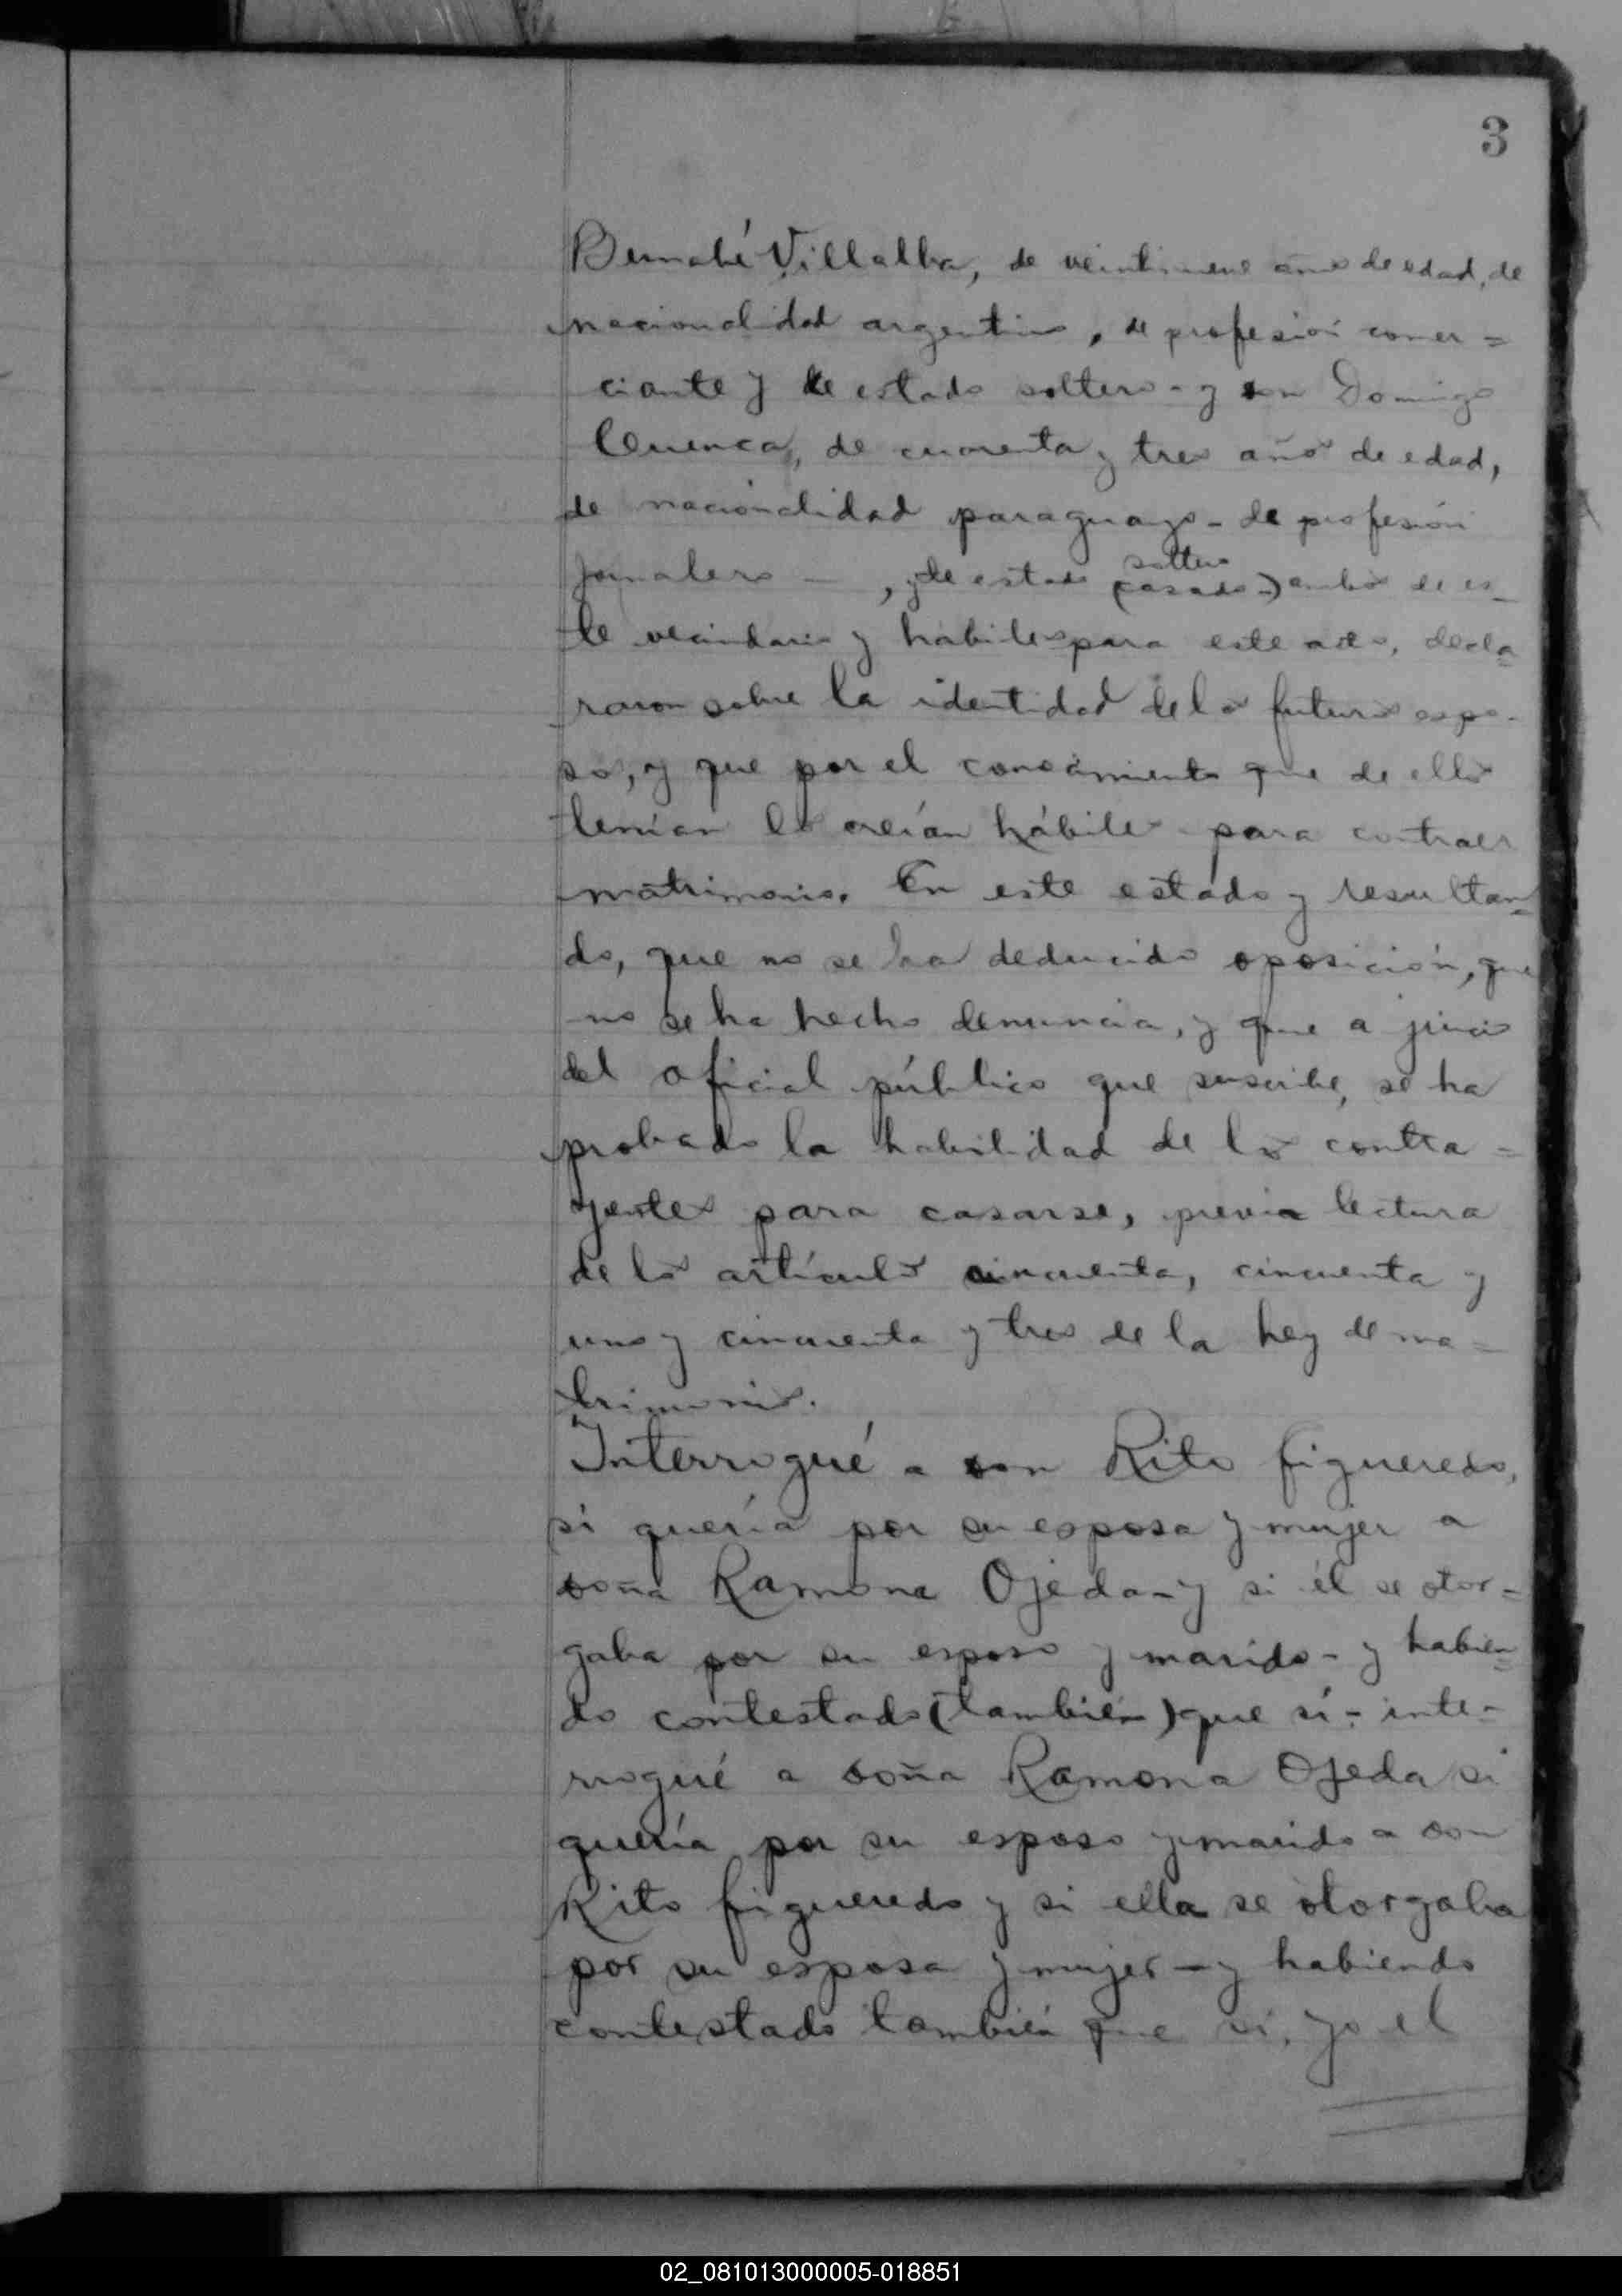 3
Bernabé Villalba, de veintinueve años de edad, de
nacionalidad argentino, de profesión comer=
ciante y de estado soltero - y don Domingo
Cuenca, de cuarenta y tres años de edad,
de nacionalidad paraguayo - de profesión
soltero
jornalero — , y de estado (casado -) ambos de es_
te vecindario y hábiles para este acto, decla_
raron sobre la identidad de los futuros espo-
sos, y que por el conocimiento que de ellos
tenían los creían hábiles para contraer
matrimonio. En este estado y resultan_
do, que no se ha deducido oposición, que
no se ha hecho denuncia, y que a juicio
del oficial público que suscribe, se ha
probado la habilidad de los contra=
yentes para casarse, previa lectura
de los artículos cincuenta, cincuenta y
uno y cincuenta y tres de la ley de ma_
trimonio.
Interrogué a don Rito Figueredo,
si quería por su esposa y mujer a
doña Ramona Ojeda - y si él se otor-
gaba por su esposo y marido - y habien_
do contestado (también) que sí - inte-
rrogué a doña Ramona Ojeda si
quería por su esposo y marido a don
Rito Figueredo y si ella se otorgaba
por su esposa y mujer - y habiendo
contestado también que sí, yo el
02_081013000005-018851